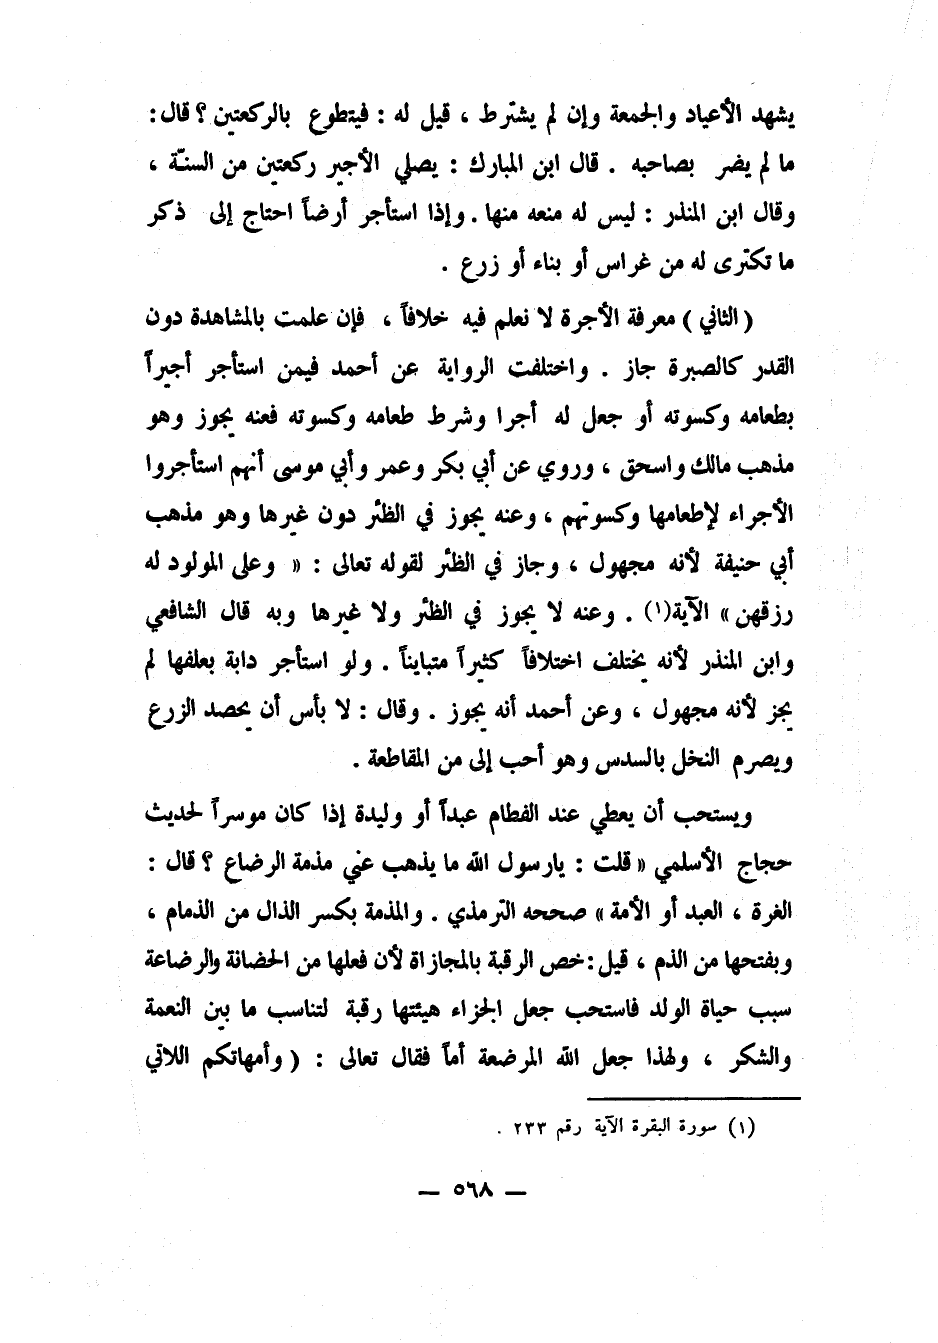 يشهد الأعياد والجمعة وإن لم يشترط ، قيل له : فيتطوع بالركعتين ؟ قال :
ما لم يضر بصاحبه . قال ابن المبارك : يصلي الأجير ركعتين من السنّة ،
وقال ابن المنذر : ليس له منعه منها . وإذا استأجر أرضاً احتاج إلى ذكر
ما تكترى له من غراس أو بناء أو زرع .
( الثاني ) معرفة الأجرة لا نعلم فيه خلافاً ، فإن علمت بالمشاهدة دون
القدر كالصبرة جاز . واختلفت الرواية عن أحمد فيمن استأجر أجيراً
بطعامه وكسوته أو جعل له أجرا وشرط طعامه وكسوته فعنه يجوز وهو
مذهب مالك واسحق ، وروي عن أبي بكر وعمر وأبي موسى أنهم استأجروا
الأجراء لإطعامها وكسوتهم ، وعنه يجوز في الظئر دون غيرها وهو مذهب
أبي حنيفة لأنه مجهول ، وجاز في الظئر لقوله تعالى : « وعلى المولود له
رزقهن » الآية(١) . وعنه لا يجوز في الظئر ولا غيرها وبه قال الشافعي
وابن المنذر لأنه يختلف اختلافاً كثيراً متبايناً . ولو استأجر دابة بعلفها لم
يجز لأنه مجهول ، وعن أحمد أنه يجوز . وقال : لا بأس أن يحصد الزرع
ويصرم النخل بالسدس وهو أحب إلى من المقاطعة .
ويستحب أن يعطي عند الفطام عبداً أو وليدة إذا كان موسراً لحديث
حجاج الأسلمي « قلت : يارسول الله ما يذهب عني مذمة الرضاع ؟ قال :
الغرة ، العبد أو الأمة » صححه الترمذي . والمذمة بكسر الذال من الذمام ،
وبفتحها من الذم ، قيل : خص الرقبة بالمجازاة لأن فعلها من الحضانة والرضاعة
سبب حياة الولد فاستحب جعل الجزاء هيئتها رقبة لتناسب ما بين النعمة
والشكر ، ولهذا جعل الله المرضعة أماً فقال تعالى : ( وأمهاتكم اللاتي
(١) سورة البقرة الآية رقم ٢٣٣ .
— ٥٦٨ —